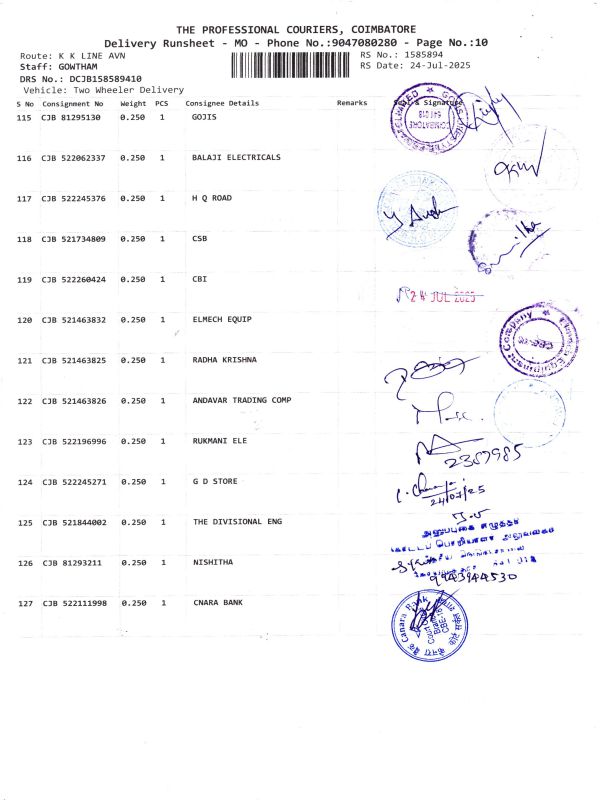 THE PROFESSIONAL COURIERS, COIMBATORE
Delivery Runsheet - MO - Phone No.:9047080280 - Page No.:10
Route: K K LINE AVN RS No.: 1585894
Staff: GOWTHAM RS Date: 24-Jul-2025
DRS No.: DCJB158589410
Vehicle: Two Wheeler Delivery
S No Consignment No Weight PCS Consignee Details Remarks Seal & Signature
115 CJB 81295130 0.250 1 GOJIS
COIMBATORE
641 018
116 CJB 522062337 0.250 1 BALAJI ELECTRICALS
117 CJB 522245376 0.250 1 H Q ROAD
118 CJB 521734809 0.250 1 CSB
119 CJB 522260424 0.250 1 CBI
24 JUL 2025
120 CJB 521463832 0.250 1 ELMECH EQUIP
121 CJB 521463825 0.250 1 RADHA KRISHNA
122 CJB 521463826 0.250 1 ANDAVAR TRADING COMP
123 CJB 522196996 0.250 1 RUKMANI ELE
2357985
124 CJB 522245271 0.250 1 G D STORE
24/07/25
125 CJB 521844002 0.250 1 THE DIVISIONAL ENG
126 CJB 81293211 0.250 1 NISHITHA
9943944530
127 CJB 522111998 0.250 1 CNARA BANK
Canara Bank